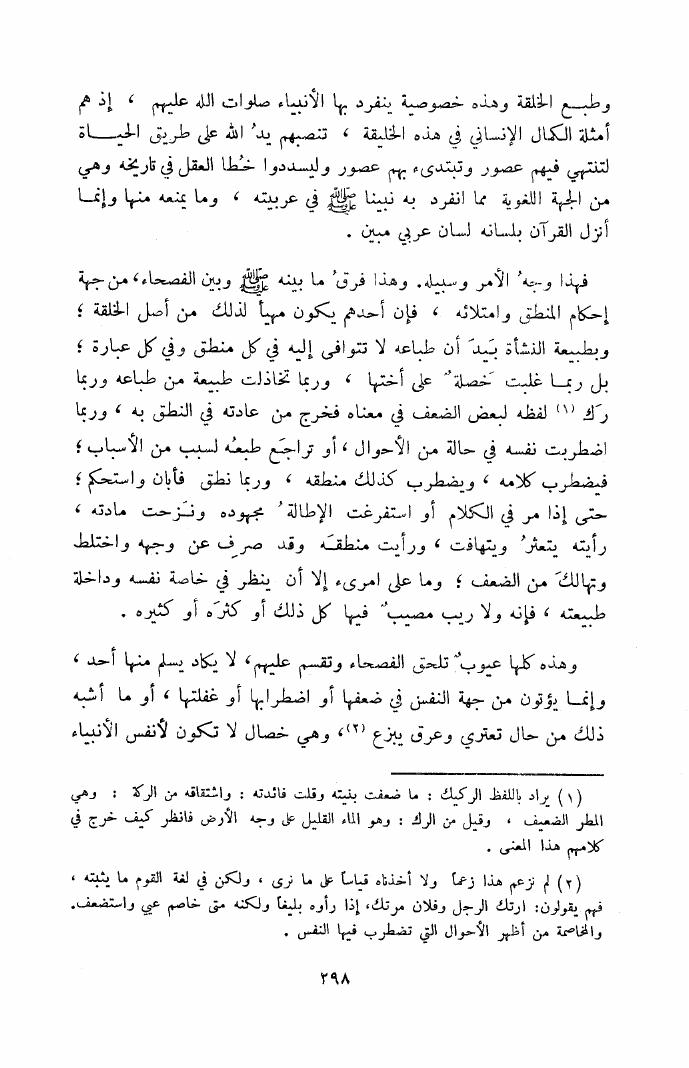 وطبـع الخلقة وهذه خصوصية ينفرد بها الأنبياء صلوات الله عليهم ، إذ هم
أمثلة الكمال الإنساني في هذه الخليقة ، تنصبهم يدُ الله على طريق الحيـــاة
لتنتهي فيهم عصور وتبتدىء بهم عصور وليسددوا خُطا العقل في تاريخه وهي
من الجهة اللغوية مما انفرد به نبينا ﷺ في عربيته ، وما يمنعه منها وإنمـا
أنزل القرآن بلسانه لسان عربي مبين .
فهذا وجهُ الأمر وسبيله. وهذا فرقُ ما بينه ﷺ وبين الفصحاء، من جهة
إحكام المنطق وامتلائه ، فإن أحدهم يكون مهيأ لذلك من أصل الخلقة ؛
وبطبيعة النشأة بَيدَ أن طباعه لا تتوافى إليه في كل منطق وفي كل عبارة ؛
بل ربمـا غلبت خَصلةٌ على أختها ، وربما تخاذلت طبيعة من طباعه وربما
ركّ (١) لفظه لبعض الضعف في معناه فخرج من عادته في النطق به ، وربما
اضطربت نفسه في حالة من الأحوال ، أو تراجَع طبعُه لسبب من الأسباب ؛
فيضطرب كلامه ، ويضطرب كذلك منطقه ، وربما نطق فأبان واستحكم ؛
حتى إذا مر في الكلام أو استفرغت الإطالةُ مجهوده ونَزحت مادته ،
رأيته يتعثرُ ويتهافت ، ورأيت منطقَه وقد صرِف عن وجهه واختلط
وتهالكَ من الضعف ؛ وما على امرىء إلا أن ينظر في خاصة نفسه وداخلة
طبيعته ، فإنه ولا ريب مصيبٌ فيها كل ذلك أو كثرَه أو كثيره .
وهذه كلها عيوبٌ تلحق الفصحاء وتقسم عليهم، لا يكاد يسلم منها أحد ،
وإنمـا يؤتون من جهة النفس في ضعفها أو اضطرابها أو غفلتها ، أو ما أشبه
ذلك من حال تعتري وعرق ينزع (٢)، وهي خصال لا تكون لأنفس الأنبياء
(١) يراد باللفظ الركيك : ما ضعفت بنيته وقلت فائدته : واشتقاقه من الركة : وهي
المطر الضعيف ، وقيل من الرك : وهو الماء القليل على وجه الأرض فانظر كيف خرج في
كلامهم هذا المعنى .
(٢) لم نزعم هذا زعماً ولا أخذناه قياساً على ما نرى ، ولكن في لغة القوم ما يثبته ،
فهم يقولون: ارتك الرجل وفلان مرتك، إذا رأوه بليغاً ولكنه متى خاصم عيي واستضعف.
والمخاصمة من أظهر الأحوال التي تضطرب فيها النفس .
٢٩٨